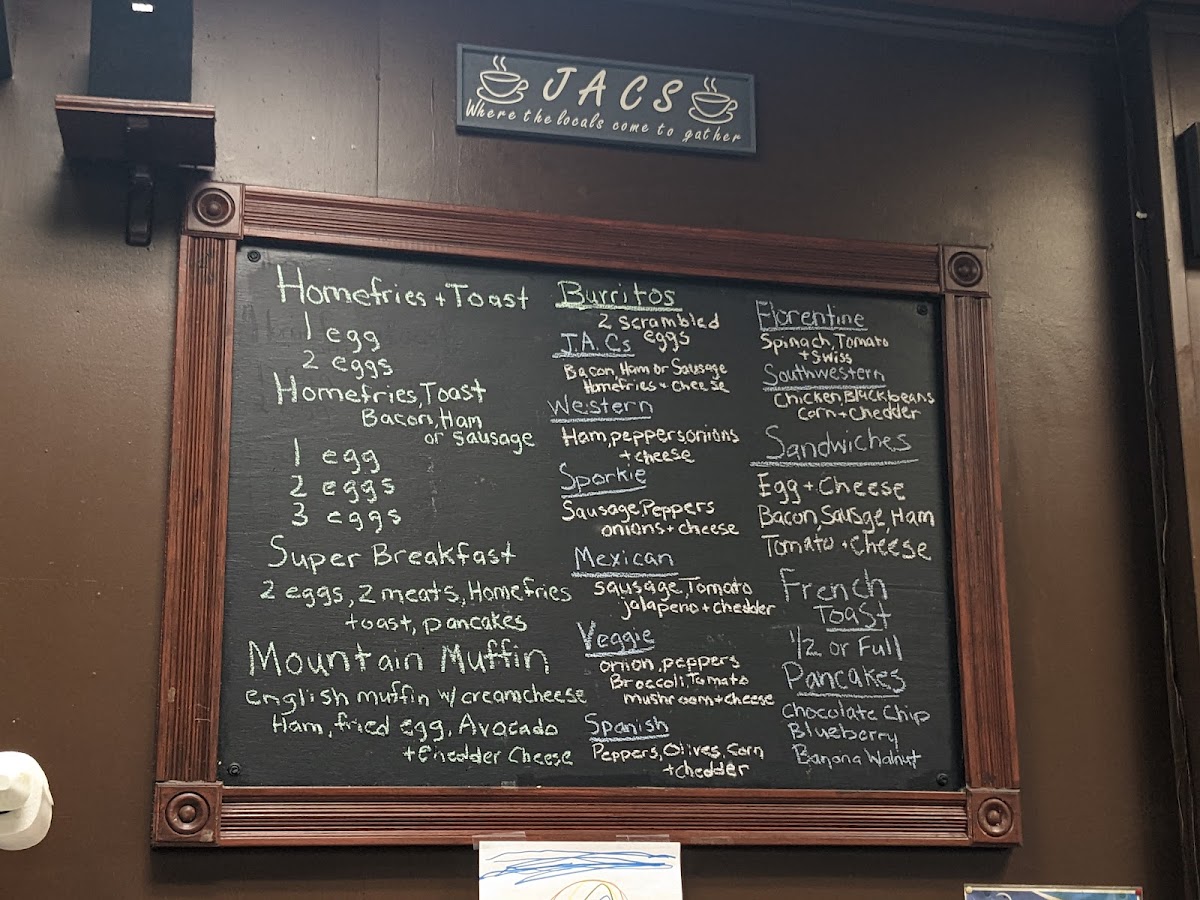 JACS
Where the locals come to gather
Homefries + Toast
1 egg
2 eggs
Homefries, Toast
Bacon, Ham
or sausage
1 egg
2 eggs
3 eggs
Super Breakfast
2 eggs, 2 meats, Homefries
toast, pancakes
Mountain Muffin
english muffin w/ creamcheese
Ham, fried egg, Avocado
+ Chedder Cheese
Burritos
2 scrambled
eggs
J.A.Cs
Bacon, Ham or Sausage
Homefries + cheese
Western
Ham, peppers onions
+ cheese
Sporkie
Sausage, Peppers
onions + cheese
Mexican
sausage, Tomato
jalapeno + chedder
Veggie
onion, peppers
Broccoli, Tomato
mushroom + cheese
Spanish
Peppers, Olives, Corn
+ chedder
Florentine
Spinach, Tomato
+ Swiss
Southwestern
Chicken, Black beans
corn + chedder
Sandwiches
Egg + Cheese
Bacon, Sausge, Ham
Tomato + Cheese
French
Toast
1/2 or Full
Pancakes
Chocolate Chip
Blueberry
Banana Walnut